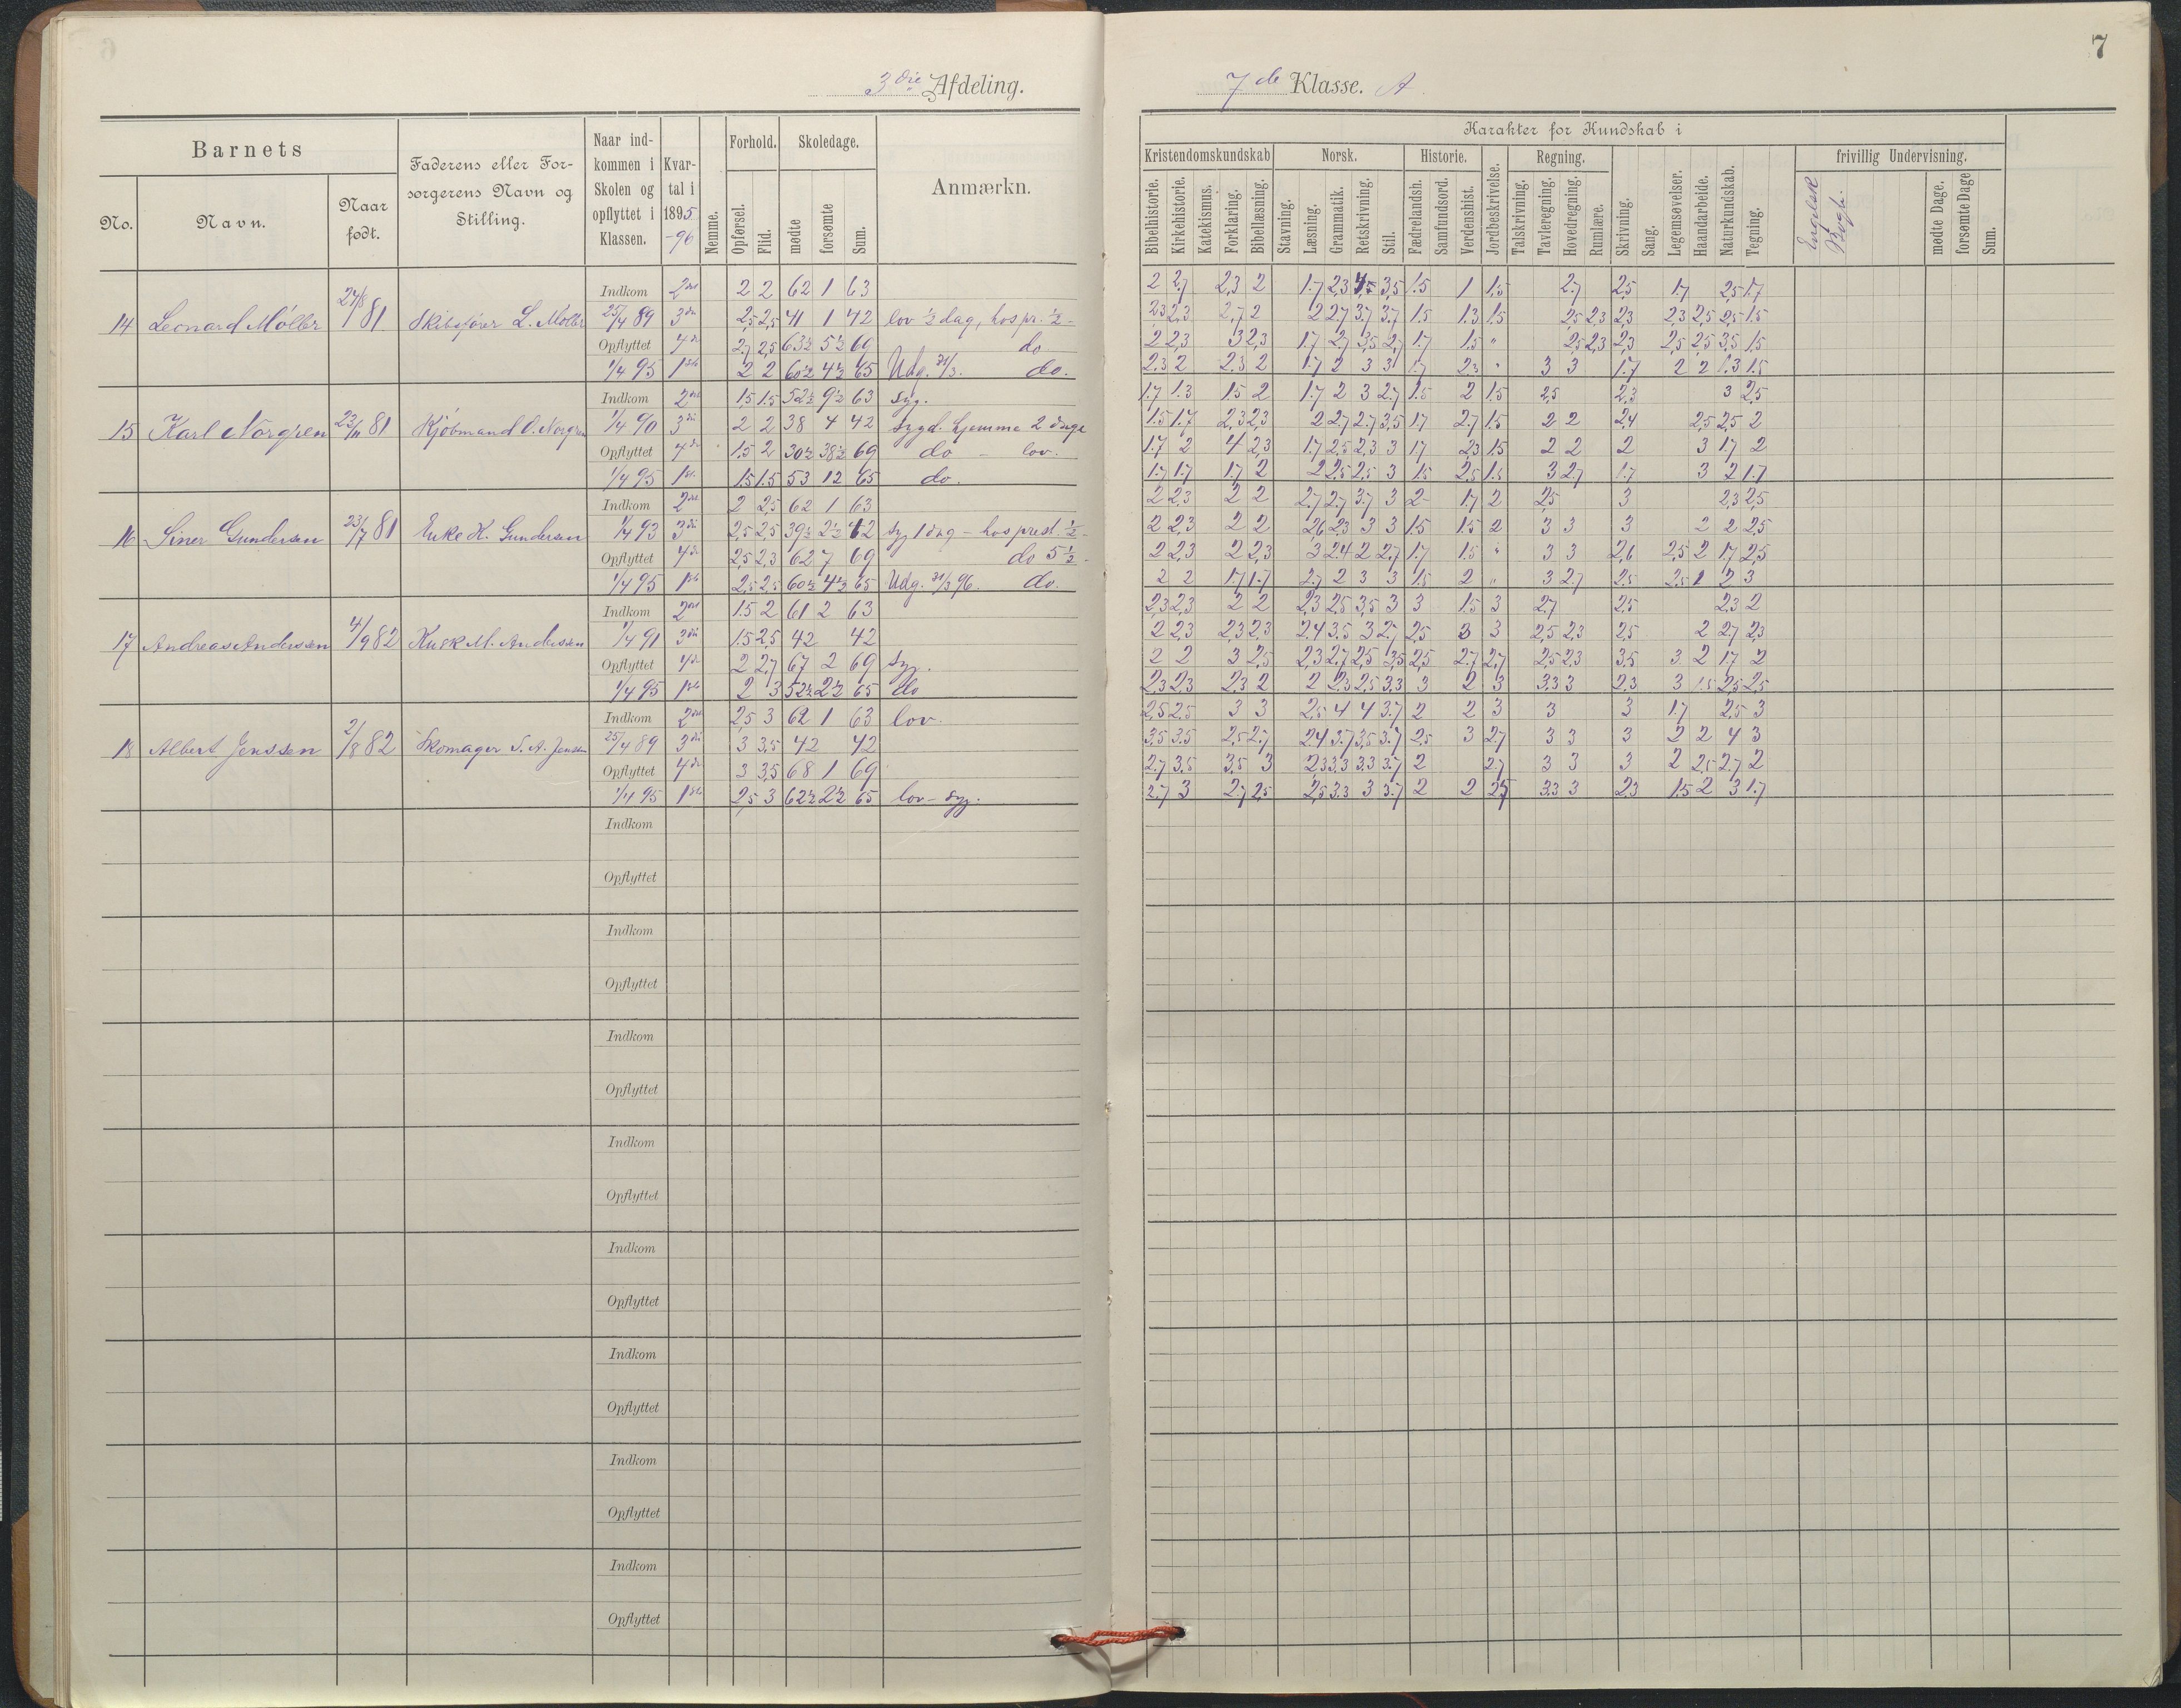 7
3die Afdeling.
7de Klasse. A
Barnets
No.
Navn.
Naar født.
Faderens eller Forsorgerens Navn og Stilling.
Naar indkommen i Skolen og opflyttet i Klassen.
Kvartal i 1895-96
Nemme.
Forhold.
Opførsel.
Flid.
Skoledage.
mødte
forsømte
Sum.
Anmærkn.
Karakter for Kundskab i
Kristendomskundskab
Norsk.
Historie.
Regning.
frivillig Undervisning.
Bibelhistorie.
Kirkehistorie.
Katekismus.
Forklaring.
Bibellæsning.
Stavning.
Læsning.
Grammatik.
Retskrivning.
Stil.
Fædrelandsh.
Samfundsord.
Verdenshist.
Jordbeskrivelse.
Talskrivning.
Tavleregning.
Hovedregning.
Rumlære.
Skrivning.
Sang.
Legemsøvelser.
Haandarbeide.
Naturkundskab.
Tegning.
Engelsk
mødte Dage.
forsømte Dage
Sum.
Indkom 2det 2 2 62 1 63 2 2,7 2,3 2 1.7 2,3 3,5 1.5 1 1,5 2.7 2,5 1.7 2,5 1.7
14 Leonard Möller 81 Skibsfører L. Möller 25/4 89 3die 2,5 2,5 41 1 42 lov ½ dag, hos pr. ½ - 2,3 2,3 2,7 2 2 2.7 3.7 3.7 1.5 1.3 1.5 2,5 2,3 2,3 2,3 2,5 2,5 1.5
Opflyttet 4de 2.7 2,5 63½ 5½ 69 do 2 2,3 3 2,3 1.7 2,7 3,5 2,7 1.7 1.5 " 2,5 2,3 2,3 2,5 2,5 3,5 1.5
1/4 95 1ste 2 2 60½ 4½ 65 Udg. 31/3. do. 2.3 2 2.3 2 1.7 2 3 3 1.7 2,3 " 3 3 1.7 2 2 1.3 1.5
Indkom 2det 1.5 1.5 52½ 9½ 63 syg. 1.7 1.3 1.5 2 1.7 2 3 2.7 1.5 2 1.5 2,5 2,3 3 2,5
15 Karl Norgren 23/11 81 Kjöbmand O. Norgren 1/4 90 3die 2 2 38 4 42 sygd. hjemme 2 dage 1.5 1.7 2,3 2,3 2 2.7 2.7 3,5 1.7 2.7 1.5 2 2 2,4 2,5 2,5 2
Opflyttet 4de 1.5 2 30½ 38½ 69 do - lov. 1.7 2 4 2,3 1.7 2,5 2,3 3 1.7 2,3 1.5 2 2 2 3 1.7 2
1/4 95 1ste 1.5 1.5 53 12 65 do. 1.7 1.7 1.7 2 2 2,5 2,5 3 1.5 2,5 1.5 3 2,7 1.7 3 2 1.7
Indkom 2det 2 2,5 62 1 63 2 2,3 2 2 2.7 2.7 3.7 3 2 1.7 2 2,5 3 2,3 2,5
16 Einer Gundersen 23/7 81 Enke K. Gundersen 1/4 93 3die 2,5 2,5 39½ 2½ 42 syg 1 dag - hos prest ½ - 2 2,3 2 2 2,6 2,3 3 3 1.5 1.5 2 3 3 3 2 2 2,5
Opflyttet 4de 2,5 2,3 62 7 69 do 5½ - 2 2,3 2 2,3 3 2.4 2 2,7 1.7 1.5 " 3 3 2,6 2,5 2 1.7 2,5
1/4 95 1ste 2,5 2,5 60½ 4½ 65 Udg. 31/3 96. do. 2 2 1.7 1.7 2.7 2 3 3 1.5 2 " 3 2.7 2.5 2,5 1 2 3
Indkom 2det 1.5 2 61 2 63 2,3 2,3 2 2 2,3 2,5 3,5 3 3 1.5 3 2.7 2,5 2,3 2
17 Andreas Andersen 4/9 82 Kusk M. Andersen 1/4 91 3die 1.5 2,5 42 42 2 2,3 2,3 2,3 2.4 3.5 3 2.7 2,5 3 3 2,5 2,3 2,5 2 2.7 2,3
Opflyttet 4de 2 2.7 67 2 69 syg. 2 2 3 2,5 2,3 2,7 2,5 3,5 2,5 2.7 2,7 2,5 2,3 3,5 3 2 1.7 2
1/4 95 1ste 2 3 52½ 2½ 65 do 2,3 2,3 2,3 2 2 2,3 2,5 3,3 3 2 3 3,3 3 2,3 3 1.5 2,5 2,5
Indkom 2det 2,5 3 62 1 63 lov. 2,5 2,5 3 3 2,5 4 4 3.7 2 2 3 3 3 1.7 2,5 3
18 Albert Jenssen 2/8 82 Skomager S. A. Jenssen 25/4 89 3die 3 3,5 42 42 3,5 3,5 2,5 2,7 2.4 3.7 3,5 3.7 2,5 3 2.7 3 3 3 2 2 4 3
Opflyttet 4de 3 3,5 68 1 69 2.7 3,5 3,5 3 2,3 3,3 3.3 3.7 2 2.7 3 3 3 2 2,5 2.7 2
1/4 95 1ste 2,5 3 62½ 2½ 65 lov - syg. 2.7 3 2,7 2,5 2,5 3.3 3 3.7 2 2 2,5 3.3 3 2,3 1.5 2 3 1.7
Indkom
Opflyttet
Indkom
Opflyttet
Indkom
Opflyttet
Indkom
Opflyttet
Indkom
Opflyttet
Indkom
Opflyttet
Indkom
Opflyttet
Indkom
Opflyttet